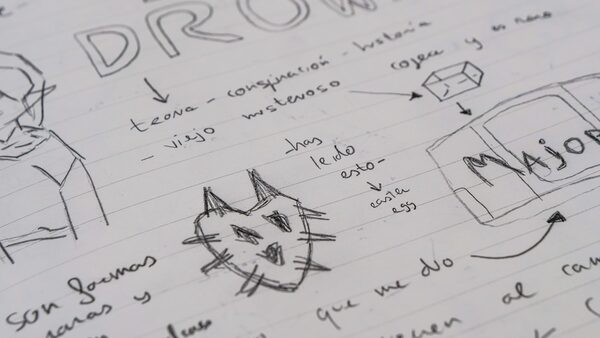 DROW
teoria - conspiración - historia
- viejo misterioso
cojea y es raro
MAJOR
-has
leido
esto-
easter
egg
son formas
y
que me do
al cam